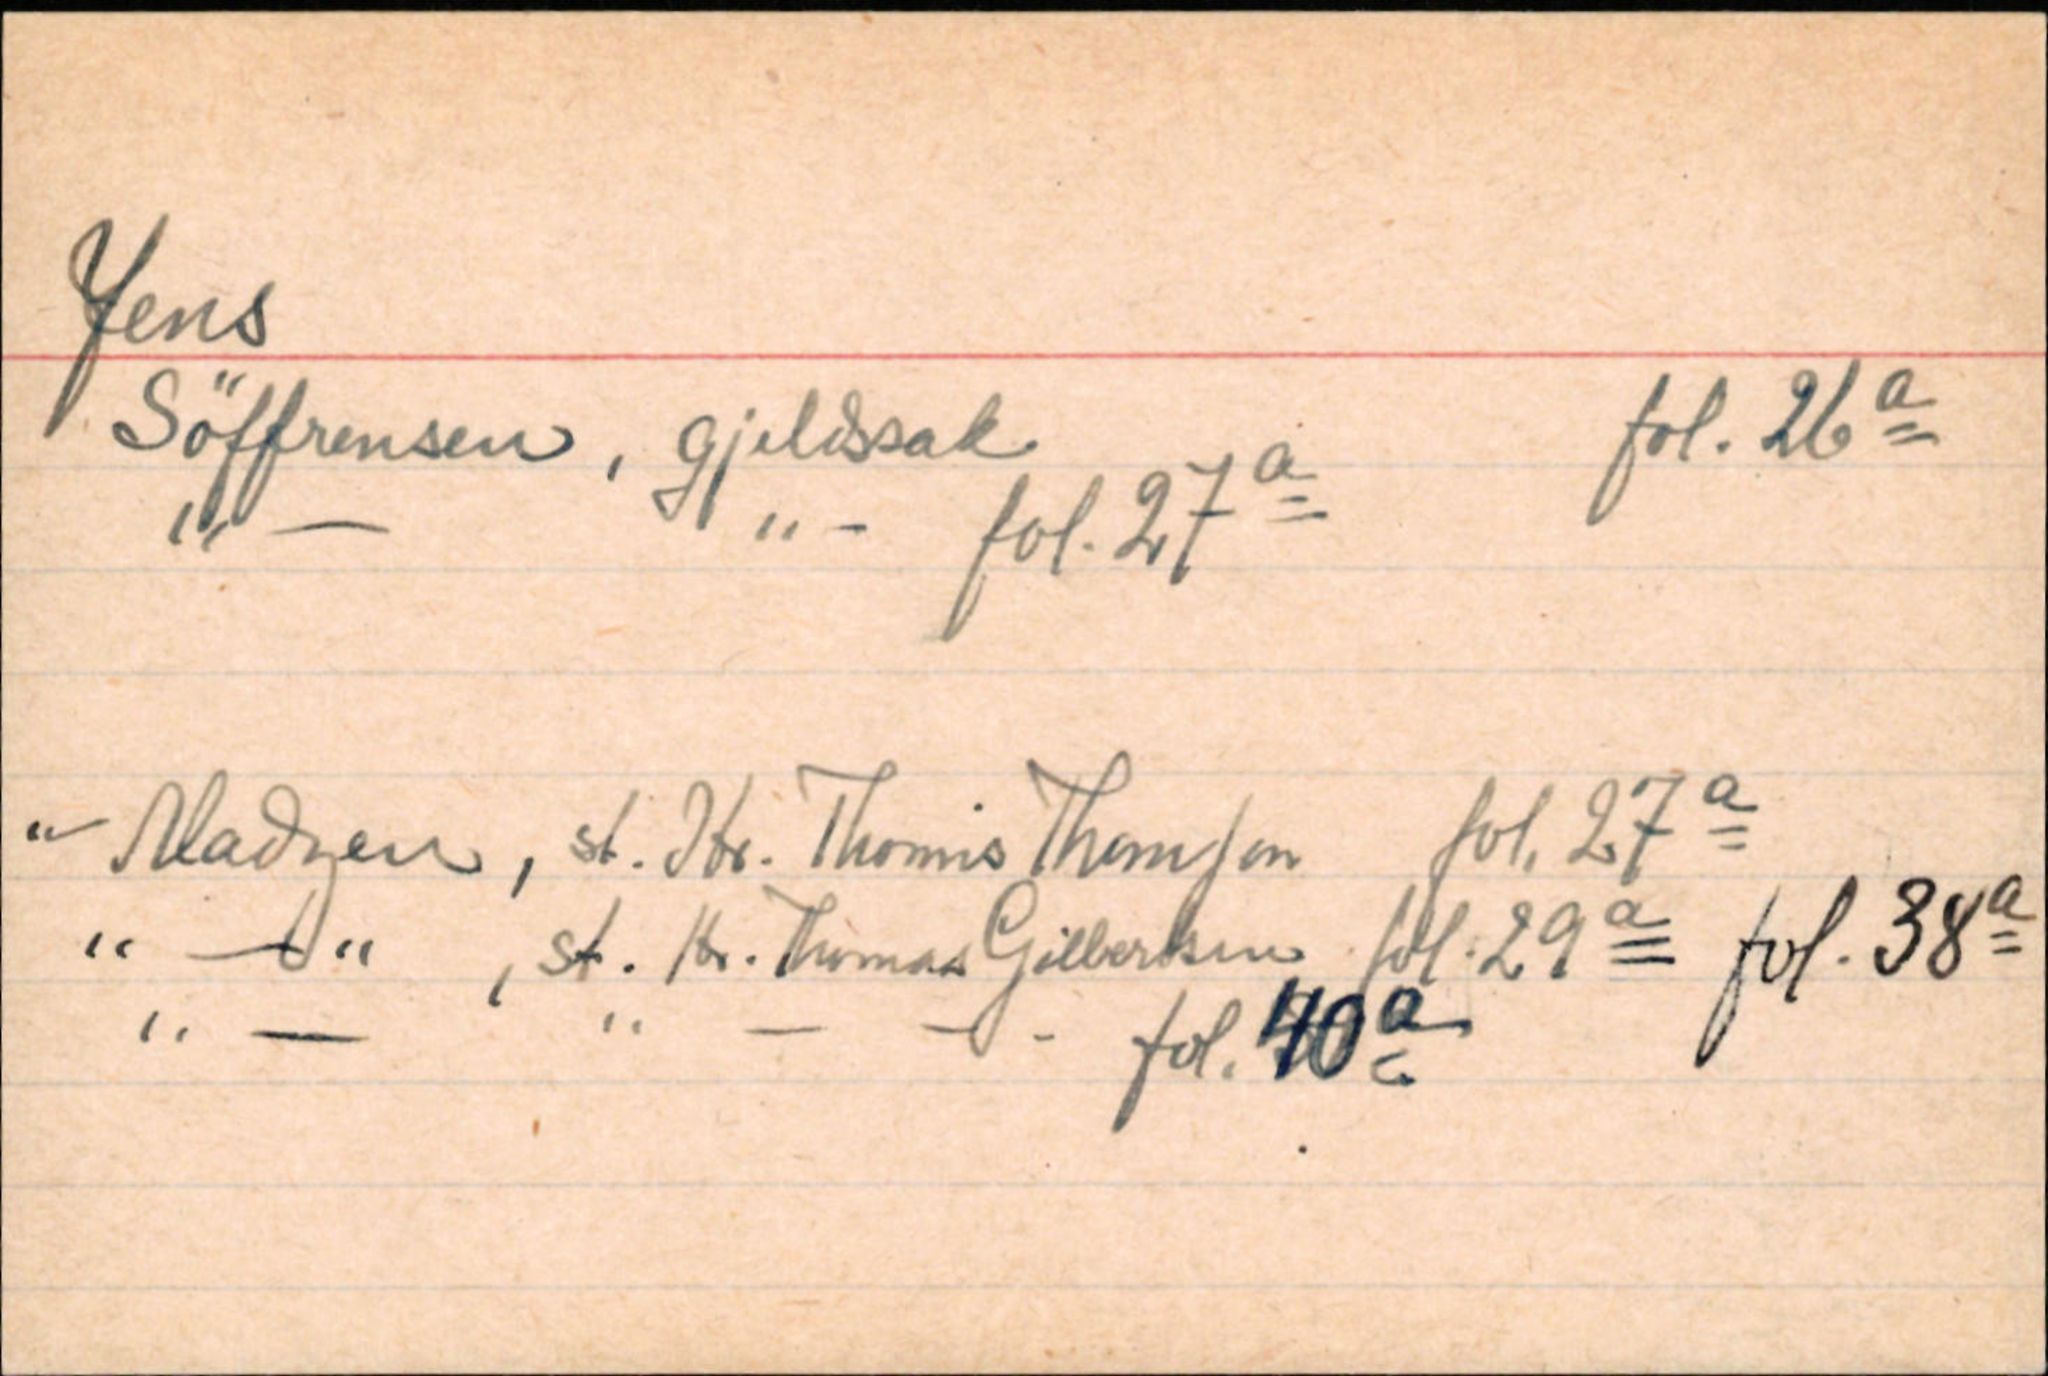 Jens
Söffrensen, gjeldssak fol. 26a
" — " - fol. 27a
"- Madzen, st. Hr. Thomis Thomson fol. 27a
" — " , st. Hr. Thomas Gilbertsen fol. 29a fol. 38a
" — " — — - fol. 40a